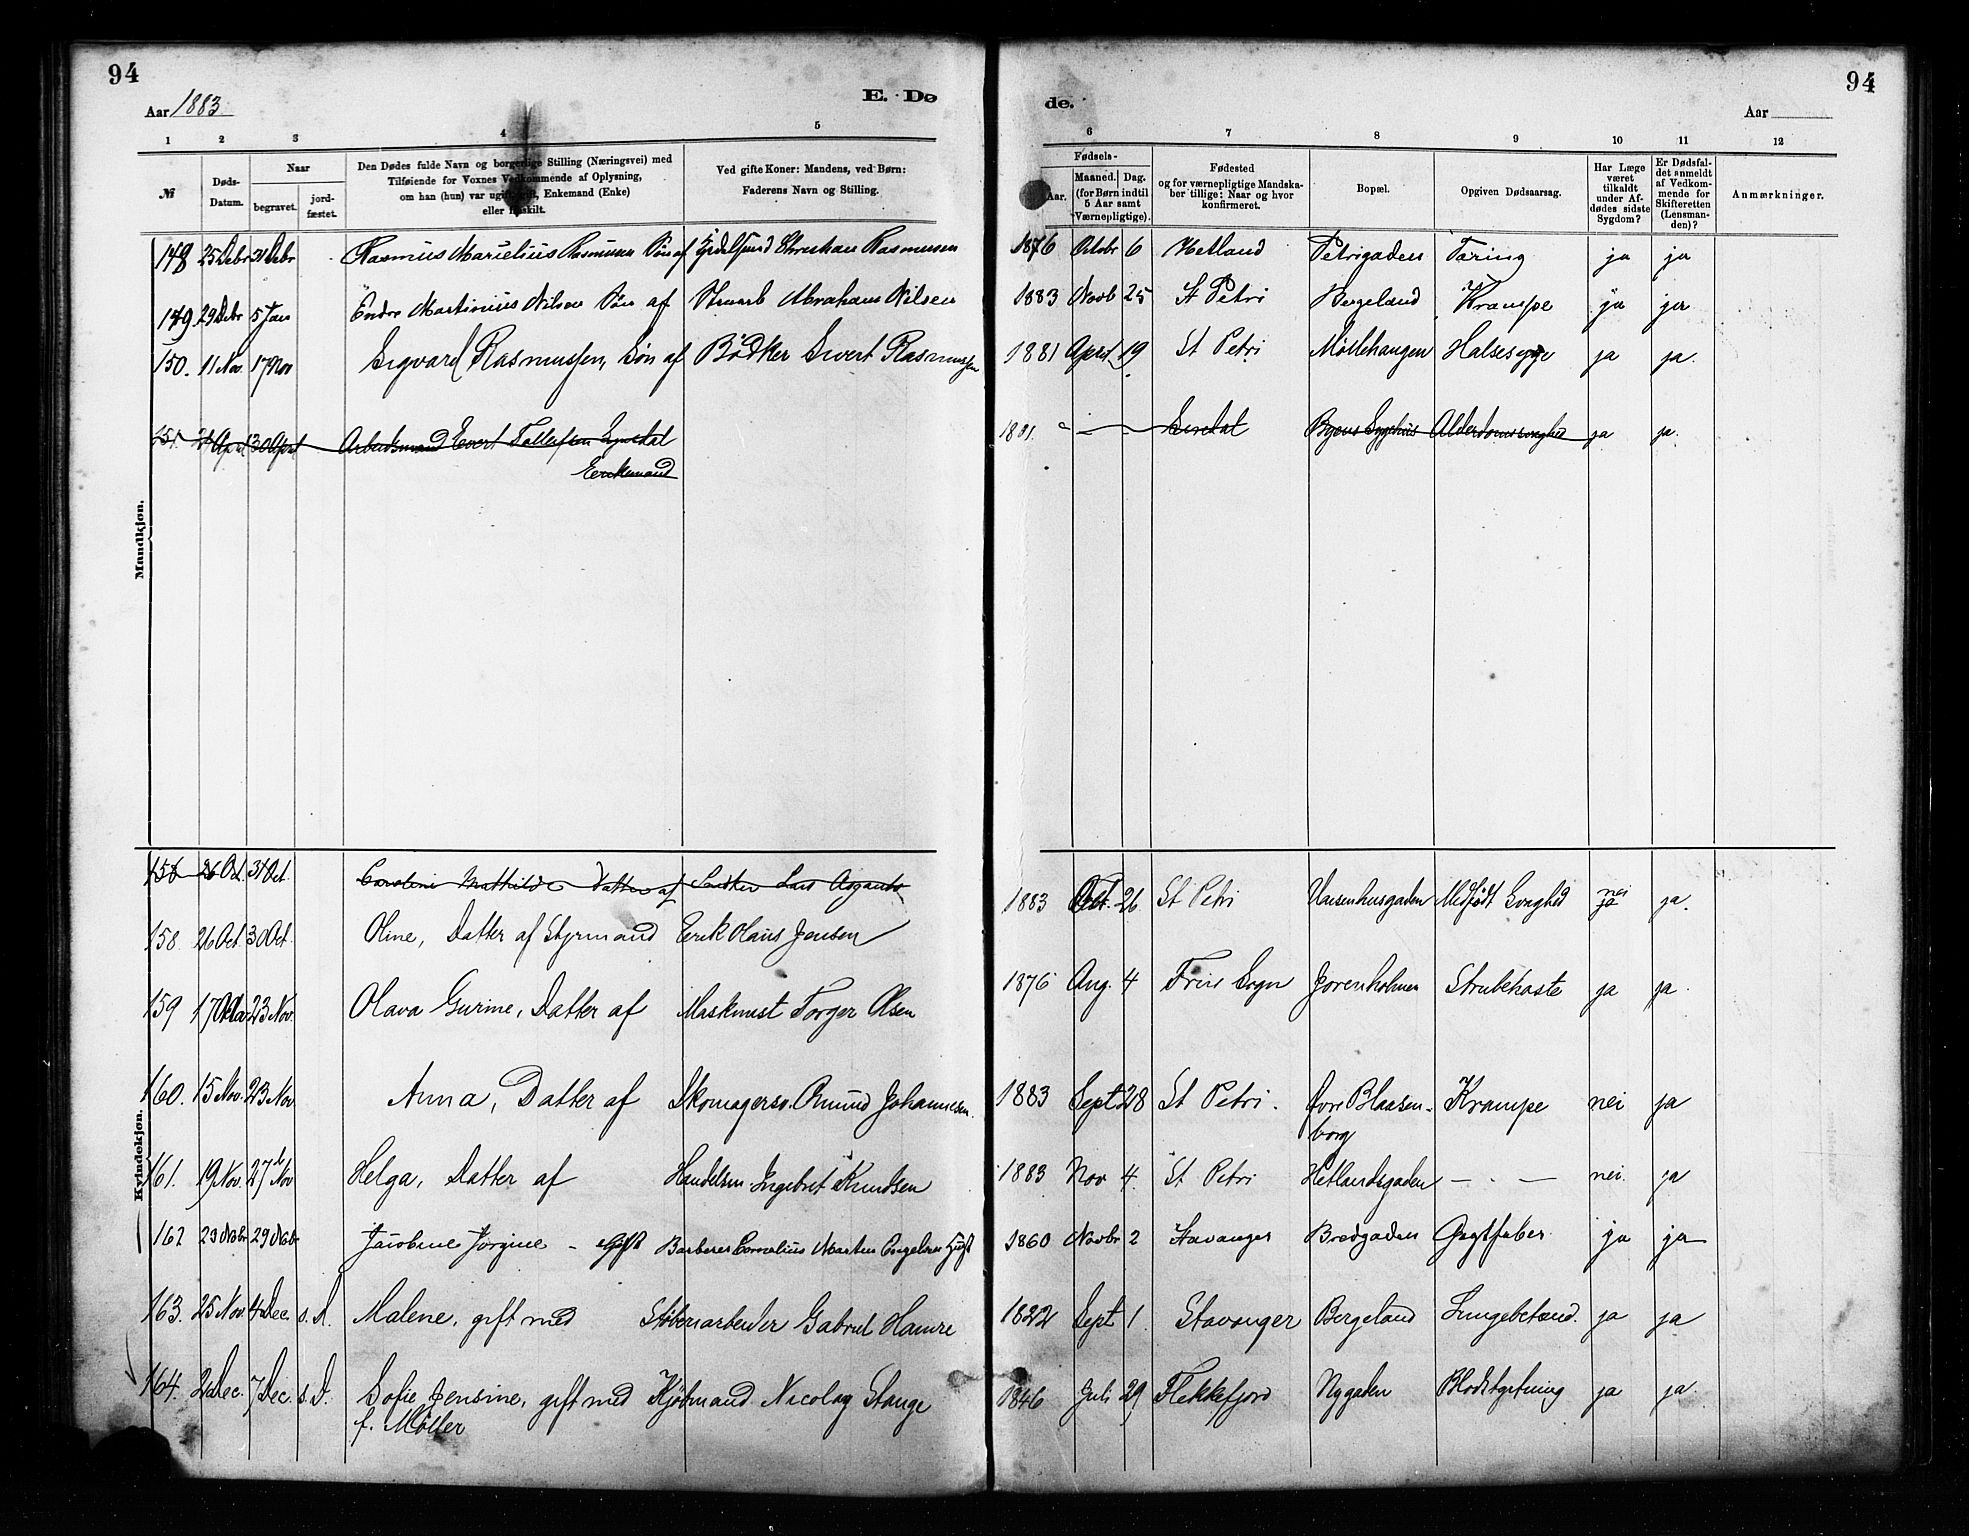 94
94
Aar 1883
E. Dø
de.
Aar
1 2 3 4 5 6 7 8 9 10 11 12
№
Døds-Datum.
Naar
begravet.
jord-fæstet.
Den Dødes fulde Navn og borgerlige Stilling (Næringsvei) med
Tilføiende for Voxnes Vedkommende af Oplysning,
om han (hun) var ugift, gift, Enkemand (Enke)
eller fraskilt.
Ved gifte Koner: Mandens, ved Børn:
Faderens Navn og Stilling.
Fødsels-
Aar.
Maaned. Dag.
(for Børn indtil
5 Aar samt
Værnepligtige).
Fødested
og for værnepligtige Mandska-
ber tillige: Naar og hvor
konfirmeret.
Bopæl.
Opgiven Dødsaarsag.
Har Læge
været
tilkaldt
under Af-
dødes sidste
Sygdom?
Er Dødsfal-
det anmeldt
af Vedkom-
mende for
Skifteretten
(Lensman-
den)?
Anmærkninger.
Mandkjøn.
148 25 Debr 31 Debr Rasmus Marielius Rasmusen Søn af Christian Rasmusen 1876 Octobr 6 Hetland Petrigaden Tæring ja ja
149 29 Debr 5 Jan Endre Martinius Nilsen Søn af Abraham Nilsen 1883 Novb 25 St Petri Bergeland Krampe ja ja
150. 11 Nov. 17 Nov Sigvard Rasmussen, Søn af Bødker Sivert Rasmussen 1881 April 19 St Petri Møllehaugen Halsesyge ja ja.
151 21 April 30 April Arbeidsmand Evert Tallefsen 1801 Byens Sygehus Alderdomssvaghed ja ja.
Enkemand
Kvindekjøn.
26 Oct. 31 Oct Caroline Mathilde Datter af Lars 1883 Oct. 26 St Petri Vaisenhusgaden Medfødt Svaghed nei ja ja.
158. 26 Oct 30 Oct. Oline, Datter af Styrmand Erik Olaus Jensen
159 17 23 Nov. Olava Gurine, Datter af Maskinist Torger Olsen 1876 Aug. 4 Frue Sogn Jorenholmen Strubehoste ja ja.
160. 15 Nov. 23 Nov Anna, Datter af Skomagersv. Omund Johannesen. 1883 Sept. 28 St Petri. Øvre Blaasen-
borg Krampe nei ja
161. 19 Nov. 27 Nov Helga, Datter af Handelsm. Ingebret Knudsen 1883 Nov 4. St Petri Hetlandsgaden — . — nei. ja
162 23 Nobr 29 Nobr Jacobine Jørgine - Gift Barberer Cornelius Marten Engelsen Gift 1860 Novbr 2 Stavanger Bredgaden Gigtfeber ja ja
163. 25 Nov. 4 Dec. s. D. Malene, gift med Støberiarbeider Gabriel Hamre 1822 Sept 1. Stavanger Bergeland Lungebetænd. ja ja
164. 2 Dec. 7 Dec. s. D. Sofie Jensine, gift med Kjøbmand Nicolay Stange 1846 Juli 29 Flekkefjord Nygaden Blodstyrtning ja ja.
f. Møller